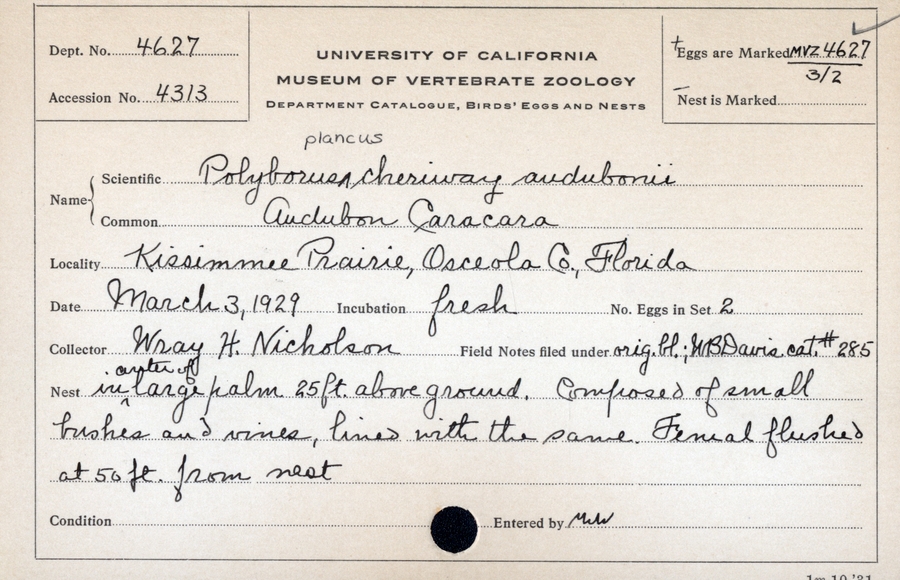 Dept. No. 4627
Accession No. 4313
UNIVERSITY OF CALIFORNIA
MUSEUM OF VERTEBRATE ZOOLOGY
DEPARTMENT CATALOGUE, BIRDS' EGGS AND NESTS
+Eggs are Marked MVZ 4627
3/2
-Nest is Marked
plancus
Name Scientific Polyborus ^ cheriway audubonii
Common Audubon Caracara
Locality Kissimmee Prairie, Osceola Co., Florida
Date March 3, 1929 Incubation fresh No. Eggs in Set 2
Collector Wray H. Nicholson Field Notes filed under orig. bl.; WBDavis cat. # 285
center of
Nest in ^ large palm 25 ft. above ground. Composed of small
bushes and vines, lined with the same. Femal flushed
at 50 ft. from nest
Condition Entered by
1m 10 '31